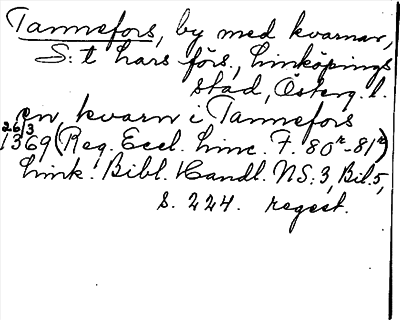 Tannefors, by med kvarnar,
S:t Lars förs., Linköpings
stad, Österg. l.
en kvarn i Tannefors
26/3
1369 (Reg. Eccl. Linc. F. 80r-81r)
Link. Bibl. Handl. NS:3, Bil.5,
s. 224. regest.